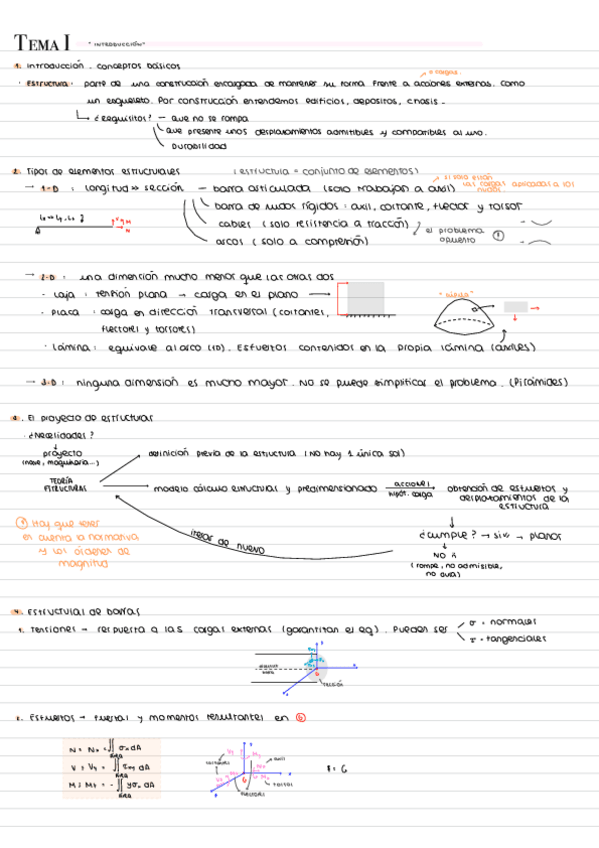 TEMA I "INTRODUCCIÓN"
1. Introducción. Conceptos básicos
o cargas.
· Estructura: parte de una construcción encargada de mantener su forma frente a acciones externas. Como
un esqueleto. Por construcción entendemos edificios, depositos, chasis.
¿Requisitos? - que no se rompa
que presente unos desplazamientos admitibles y compatibles al uso.
Durabilidad
2. Tipos de elementos estructurales (estructura = conjunto de elementos)
→ si solo estan
las cargas aplicadas a los
nudos.
→ 1-D: longitud >> sección - barra articulada (solo trabajan a axil)
barra de nudos rígidos: axil, cortante, flector y torsor
cables (solo resistencia a tracción)
arcos (solo a compresión)
el problema
opuesto
→ 2-D: una dimensión mucho menor que las otras dos
- Laja: tensión plana → carga en el plano
- placa: carga en dirección transversal (cortantes,
flectores y torsores)
· Lámina: equivale al arco (1D). Esfuerzos contenidos en la propia lámina (axiles)
→ 3-D: ninguna dimensión es mucho mayor. No se puede simplificar el problema. (Pirámides)
. El proyecto de estructuras
· ¿Necesidades?
proyecto
(nave, maquinaria...)
definición previa de la estructura (No hay 1 única sol)
TEORÍA
ESTRUCTURAS
modelo cálculo estructural y predimensionado
acciones
hipót. carga
obtención de esfuerzos y
desplazamientos de la
estructura
! Hay que tener
en cuenta la normativa
y los órdenes de
magnitud
iterar de nuevo
¿cumple? → si → planos
NO
(rompe, no admisible,
no dura)
4. Estructuras de barras
1. Tensiones → respuesta a las cargas externas (garantizan el eq). Pueden ser
σ = normales
τ = tangenciales
sección
2. Esfuerzos → fuerzas y momentos resultantes en G
N = Nx = ∬ σx dA
V = Vy = ∬ τxy dA
M = Mz = - ∬ yσx dA
axil
torsor
flectores